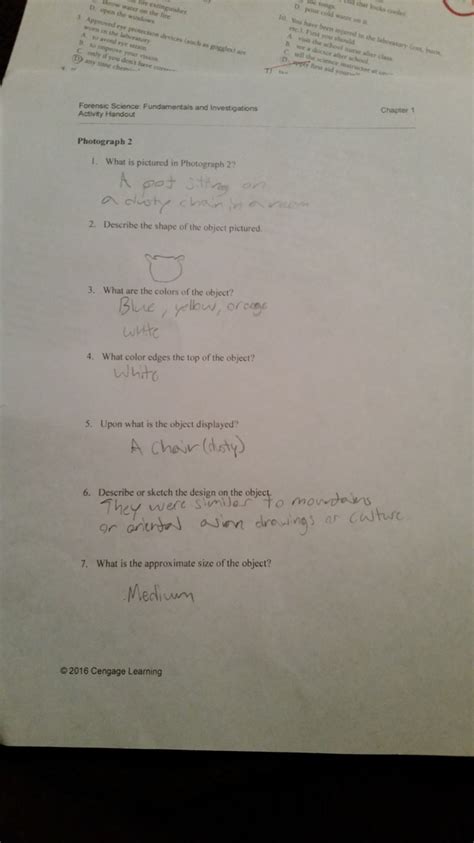 fire extinguisher
throw water on the fire
D. open the windows
3. Approved eye protection devices (such as goggles) are
worn in the laboratory
A. to avoid eye strain
B. to improve your vision
C. only if you don't have
D. any time
tongs
D. pour cold water on it
10. You have been injured in the laboratory (cut, burn,
etc.). First you should
A. visit the school nurse after class
B. see a doctor after school
C. tell the science instructor at
D. apply first aid yourself
Forensic Science: Fundamentals and Investigations
Chapter 1
Activity Handout
Photograph 2
1. What is pictured in Photograph 2?
A pot sitting on
a dusty chair in a room
2. Describe the shape of the object pictured.
3. What are the colors of the object?
Blue, yellow, orange
white
4. What color edges the top of the object?
White
5. Upon what is the object displayed?
A chair (dusty)
6. Describe or sketch the design on the object.
They were similar to mountains
or oriental asian drawings or culture.
7. What is the approximate size of the object?
Medium
© 2016 Cengage Learning